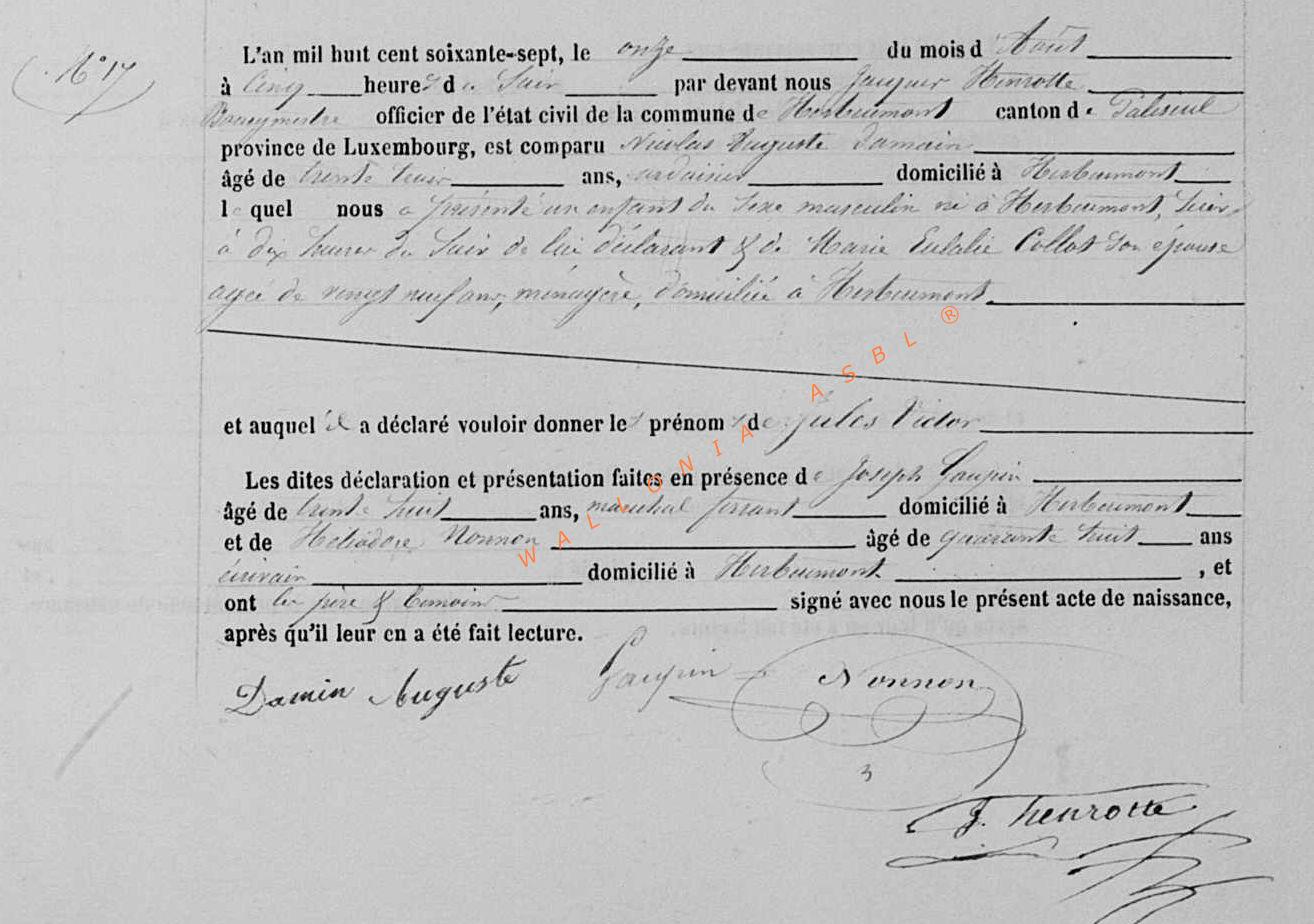 N° 17
L'an mil huit cent soixante-sept, le onze du mois d Août
à Cinq heures du Soir par devant nous Jacques Henrotte
Bourgmestre officier de l'état civil de la commune de Herbeumont canton de Paliseul
province de Luxembourg, est comparu Nicolas Auguste Damain
âgé de trente ans, ardoisier domicilié à Herbeumont
le quel nous a présenté un enfant du sexe masculin né à Herbeumont, hier
à dix heures du Soir de lui déclarant & de Marie Eulalie Collot son épouse
agée de vingt neuf ans, ménagère, domiciliée à Herbeumont
et auquel il a déclaré vouloir donner les prénoms de Jules Victor
Les dites déclaration et présentation faites en présence de Joseph Goupin
âgé de trente huit ans, maréchal ferrant domicilié à Herbeumont
et de Héliodore Nonnon âgé de quarante huit ans
écrivain domicilié à Herbeumont , et
ont les père & témoins signé avec nous le présent acte de naissance,
après qu'il leur en a été fait lecture.
Damin Auguste Goupin Nonnon
J. henrotte
WALLONIA ASBL ®